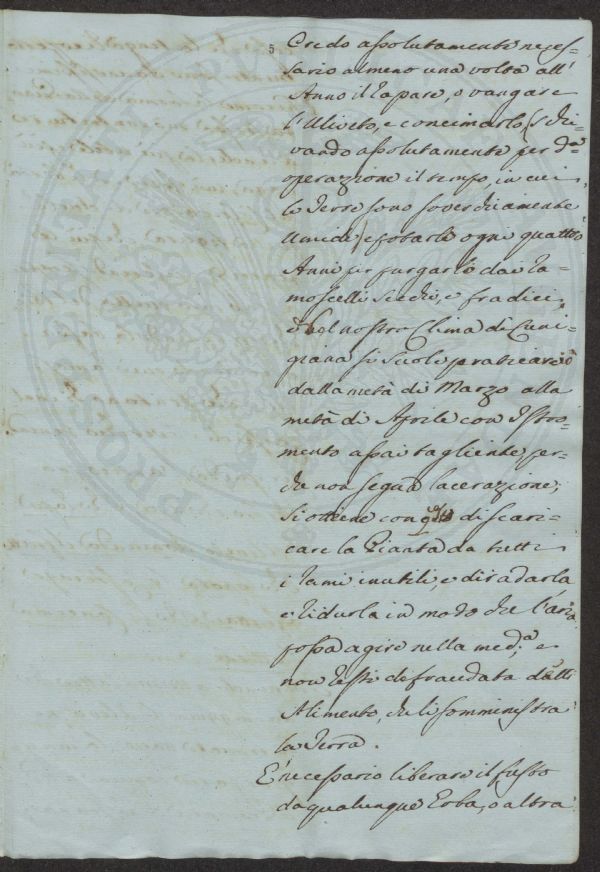 5
Credo assolutamente neces=
sario almeno una volta all'
Anno il Zapare, o vangare
l'Uliveto, e concimarlo, (schi=
vando assolutamente per d.ª
operazione il tempo, in cui
le Terre sono soverchiamente
umide) e potarlo ogni quattro
Anni per purgarlo dai Ra=
moscelli secchi, e fradici,
nel nostro Clima di Luni=
giana si suole praticare ciò
dalla metà di Marzo alla
metà di Aprile con Istro=
mento assai tagliente per=
chè non segua lacerazione;
si ottiene con di scari=
care la Pianta da tutti
i rami inutili, e diradarla
e ridurla in modo che l'aria
possa agire nella med.ª e
non resti defraudata dall'
Alimento, che li somministra
la Terra.
È necessario liberare il fusto
da qualunque Erba, o altra